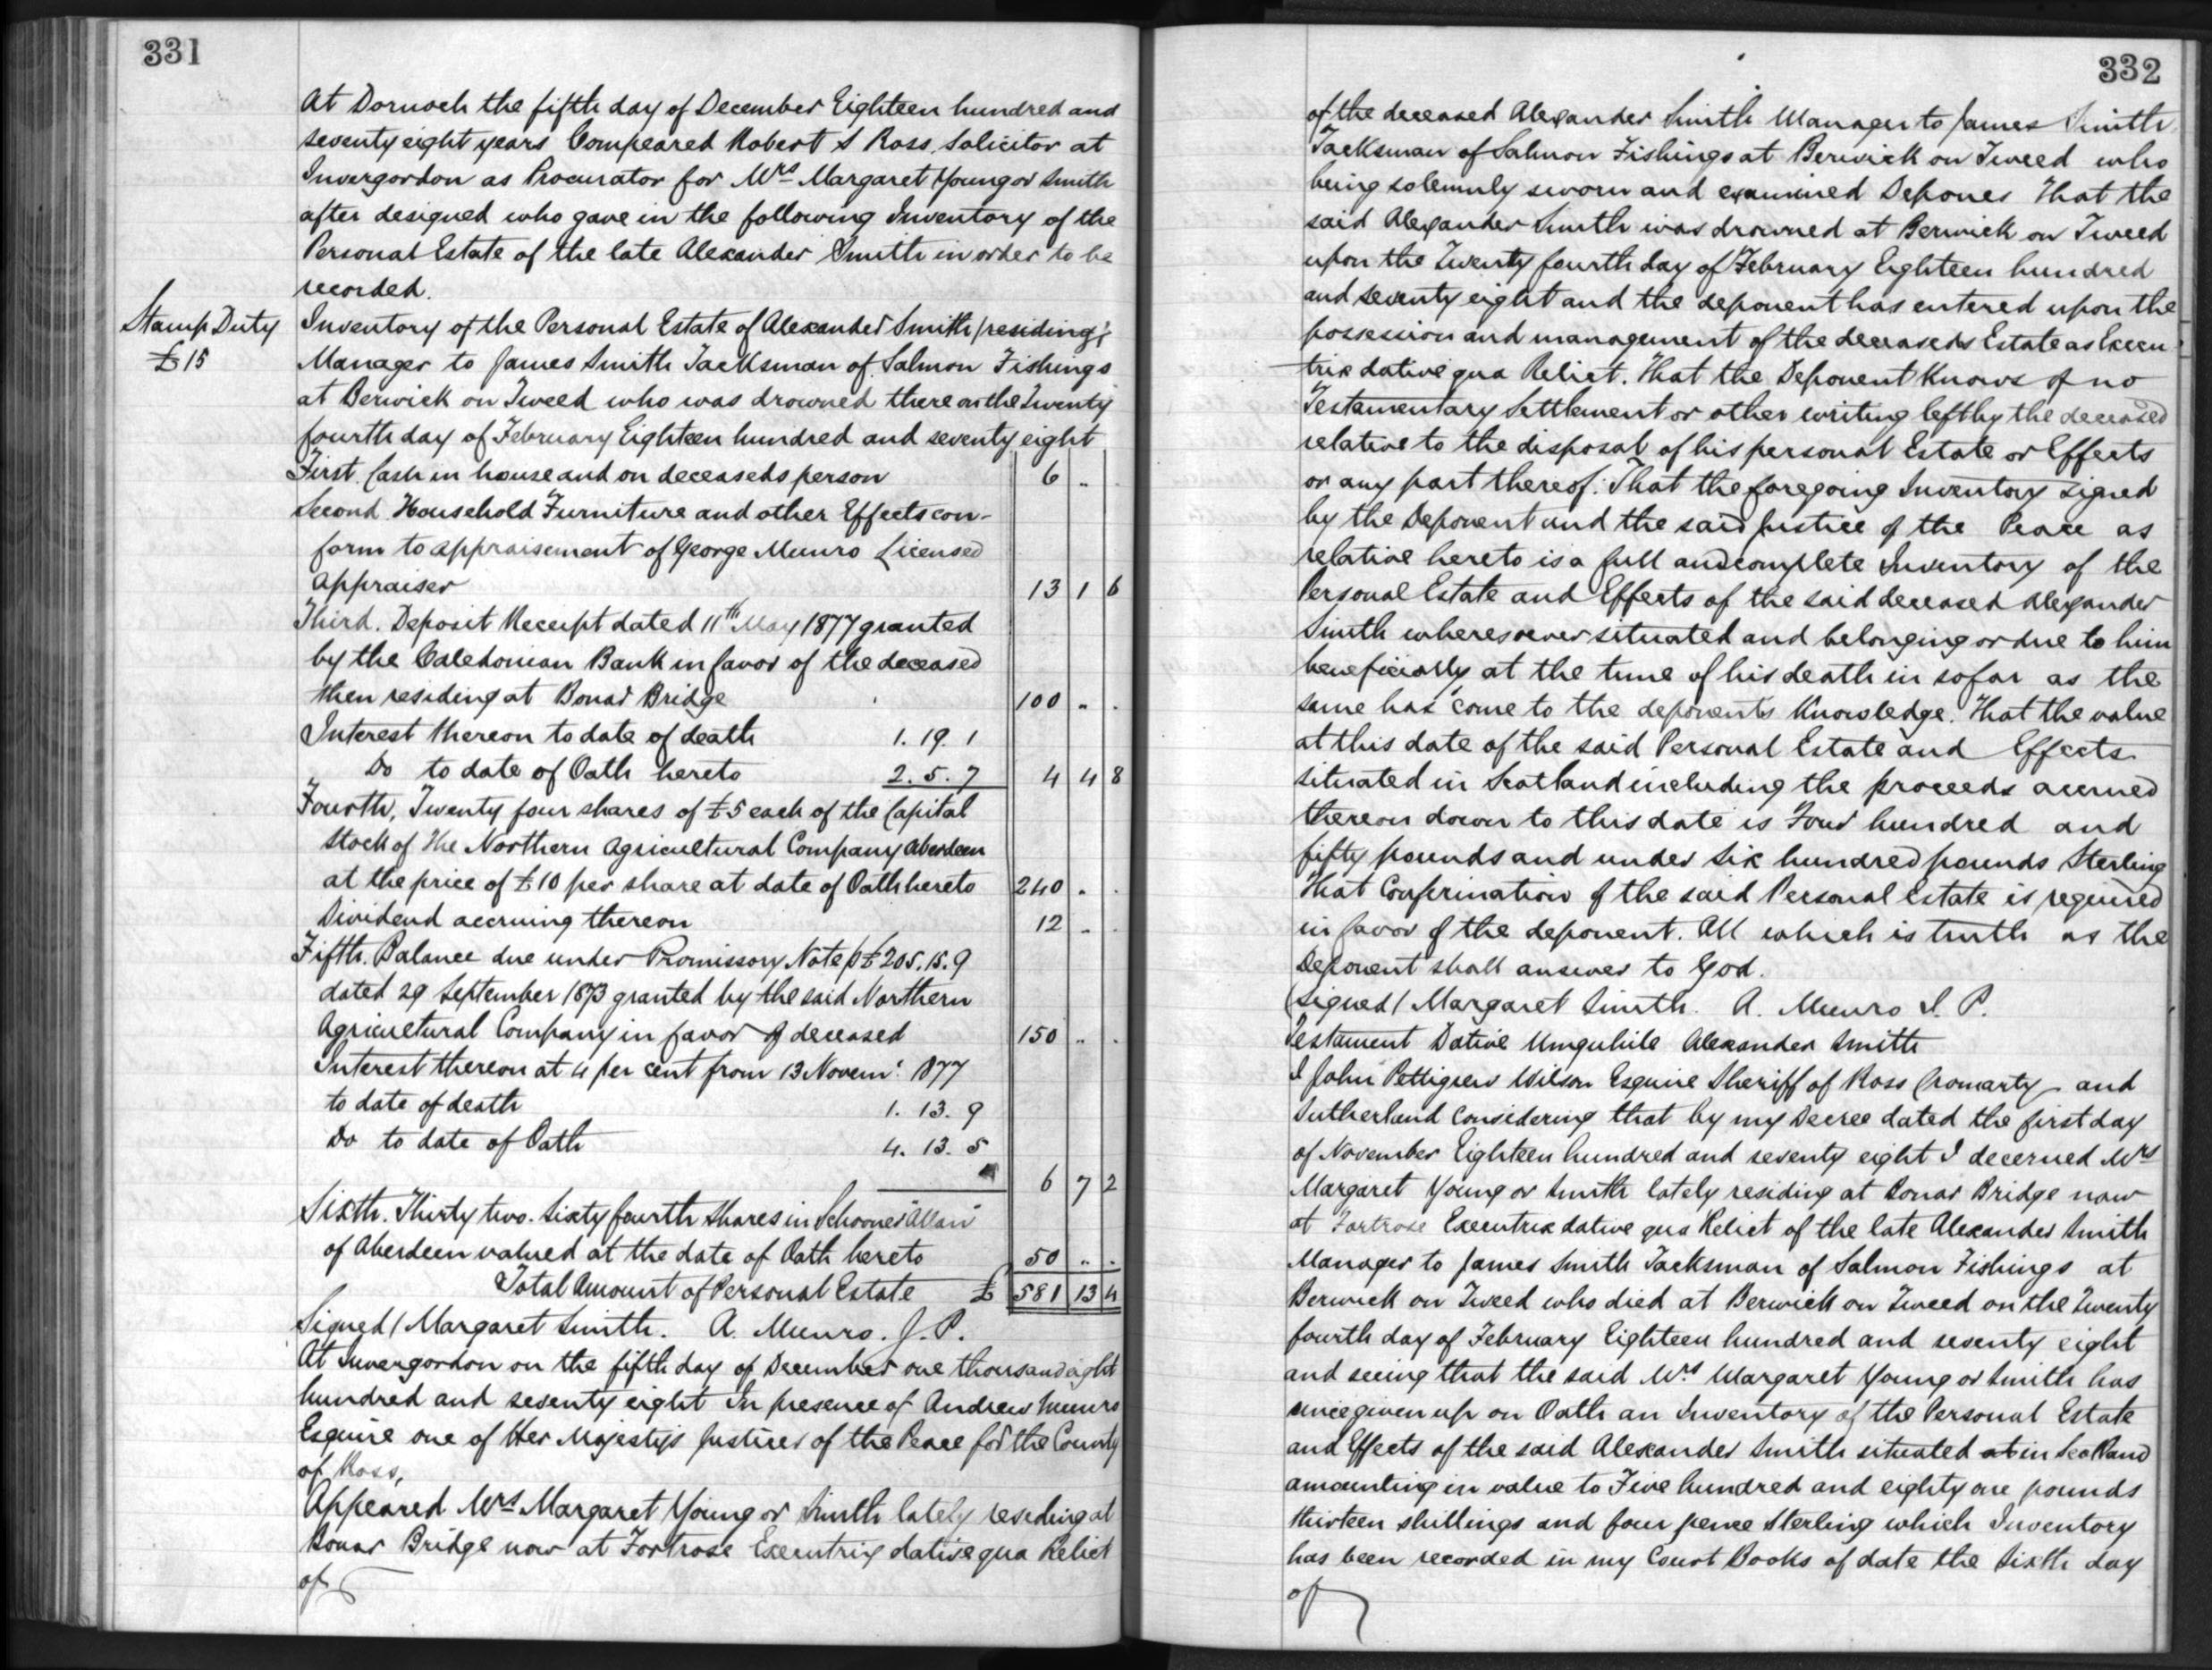 331
At Dornoch the fifth day of December Eighteen hundred and
seventy eight years Compeared Robert S Ross, Solicitor at
Invergordon as Procurator for Mrs Margaret Young or Smith
after designed who gave in the following Inventory of the
Personal Estate of the late Alexander Smith in order to be
recorded.
Stamp Duty
£15
Inventory of the Personal Estate of Alexander Smith /residing/
Manager to James Smith Tacksman of Salmon Fishings
at Berwick on Tweed who was drowned there on the Twenty
fourth day of February Eighteen hundred and seventy eight
First. Cash in house and on deceaseds person 6 " "
Second. Household Furniture and other Effects con-
form to appraisement of George Munro Licensed
appraiser 13 1 6
Third. Deposit Receipt dated 11th May 1877 granted
by the Caledonian Bank in favor of the deceased
then residing at Bonar Bridge 100 " "
Interest thereon to date of death 1. 19. 1
Do to date of Oath hereto 2. 5. 7 4 4 8
Fourth, Twenty four shares of £5 each of the Capital
stock of The Northern Agricultural Company Aberdeen
at the price of £10 per share at date of Oath hereto 240 " "
Dividend accruing thereon 12 " "
Fifth. Balance due under Promissory Note p £205.15.9
dated 29 September 1873 granted by the said Northern
Agricultural Company in favor of deceased 150 " "
Interest thereon at 4 per cent from 13 Novemr 1877
to date of death 1. 13. 9
Do to date of Oath 4. 13. 5
6 7 2
Sixth. Thirty two. Sixty fourth shares in Schooner "Allan"
of Aberdeen valued at the date of Oath hereto 50 " "
Total Amount of Personal Estate £ 581 13 4
Signed/ Margaret Smith. A. Munro. J.P.
At Invergordon on the fifth day of December one thousand eight
hundred and seventy eight In presence of Andrew Munro
Esquire one of Her Majesty's Justices of the Peace for the County
of Ross,
Appeared Mrs Margaret Young or Smith lately residing at
Bonar Bridge now at Fortrose Executrix dative qua Relict
of
332
of the deceased Alexander Smith Manager to James Smith
Tacksman of Salmon Fishings at Berwick on Tweed who
being solemnly sworn and examined Depones That the
said Alexander Smith was drowned at Berwick on Tweed
upon the Twenty fourth day of February Eighteen hundred
and seventy eight and the deponent has entered upon the
possession and management of the deceaseds Estate as Execu
trix dative qua Relict. That the Deponent Knows of no
Testamentary Settlement or other writing left by the deceased
relative to the disposal of his personal Estate or Effects
or any part thereof. That the foregoing Inventory signed
by the Deponent and the said Justice of the Peace as
relative hereto is a full and complete Inventory of the
Personal Estate and Effects of the said deceased Alexander
Smith wheresoever situated and belonging or due to him
beneficially at the time of his death in so far as the
same has come to the deponents Knowledge. That the value
at this date of the said Personal Estate and Effects
situated in Scotland including the proceeds accrued
thereon down to this date is Four hundred and
fifty pounds and under Six hundred pounds Sterling
That Confirmation of the said Personal Estate is required
in favor of the deponent. All which is truth as the
Deponent shall answer to God.
(signed/ Margaret Smith. A. Munro J. P.
Testament Dative Umquhile Alexander Smith
I John Pettigrew Wilson Esquire Sheriff of Ross Cromarty and
Sutherland Considering that by my Decree dated the first day
of November Eighteen hundred and seventy eight I decerned Mrs
Margaret Young or Smith lately residing at Bonar Bridge now
at Fortrose Executrix dative qua Relict of the late Alexander Smith
Manager to James Smith Tacksman of Salmon Fishings at
Berwick on Tweed who died at Berwick on Tweed on the Twenty
fourth day of February Eighteen hundred and seventy eight
and seeing that the said Mrs Margaret Young or Smith has
since given up on Oath an Inventory of the Personal Estate
and Effects of the said Alexander Smith situated at in Scotland
amounting in value to Five hundred and eighty one pounds
thirteen shillings and four pence Sterling which Inventory
has been recorded in my Court Books of date the Sixth day
of